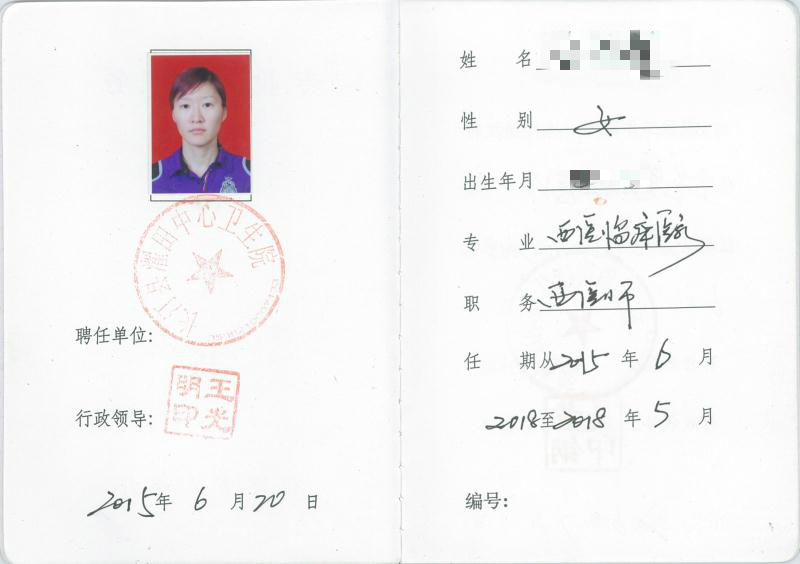 长汀县濯田中心卫生院
聘任单位:
王光明印
行政领导:
2015年 6 月 20 日
姓 名
性 别 女
出生年月
专 业 西医临床医疗
职 务 西医师
任 期从2015 年 6 月
2018至2018 年 5 月
编号: